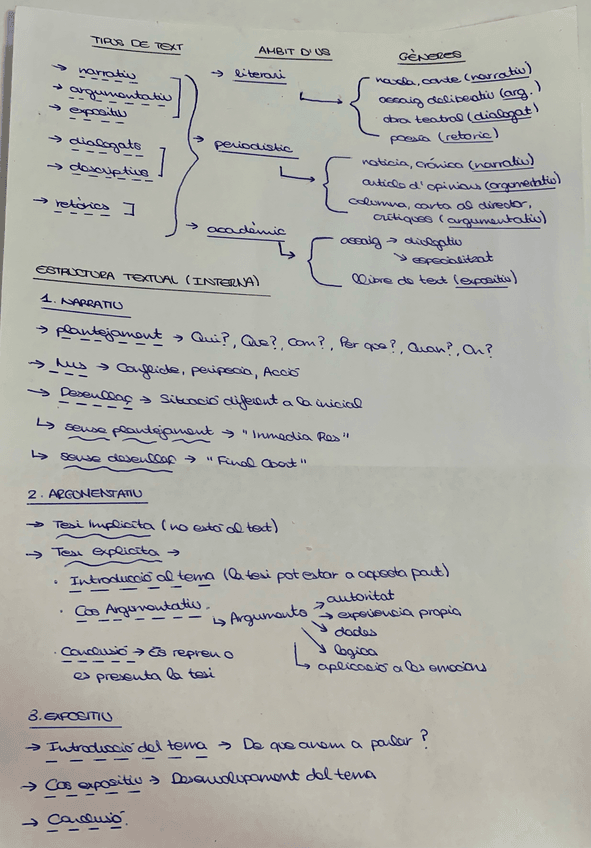 TIPUS DE TEXT AMBIT D'US GÈNERES
→ narratiu → literari novela, conte (narratiu)
→ argumentatiu assaig deliberatiu (arg.)
→ expositiu obra teatral (dialogat)
poesia (retoric)
→ dialogats → periodístic noticia, crónica (narratiu)
→ descriptius article d'opinions (argumentatiu)
→ retòrics columna, carta al director,
crítiques (argumentatiu)
→ acadèmic assaig → divulgatiu
↘ especialitzat
llibre de text (expositiu)
ESTRUCTURA TEXTUAL (INTERNA)
1. NARRATIU
→ plantejament → Qui?, Que?, com?, Per que?, Quan?, On?
→ Nus → Conflicte, peripecia, Acció
→ Desenllaç → Situació diferent a la inicial
↳ sense plantejament → "Inmedia Res"
↳ sense desenllaç → "Final Obert"
2. ARGUMENTATIU
→ Tesi Implícita (no està al text)
→ Tesi explicita →
· Introducció al tema (la tesi pot estar a aquesta part)
· Cos Argumentatiu.
↳ Arguments → autoritat
→ experiencia propia
↘ dades
↘ logica
↳ aplicació a les emocions
· Conclusió → Es repren o
es presenta la tesi
3. EXPOSITIU
→ Introducció del tema → De que anem a parlar?
→ Cos expositiu → Desenvolupament del tema
→ Conclusió.